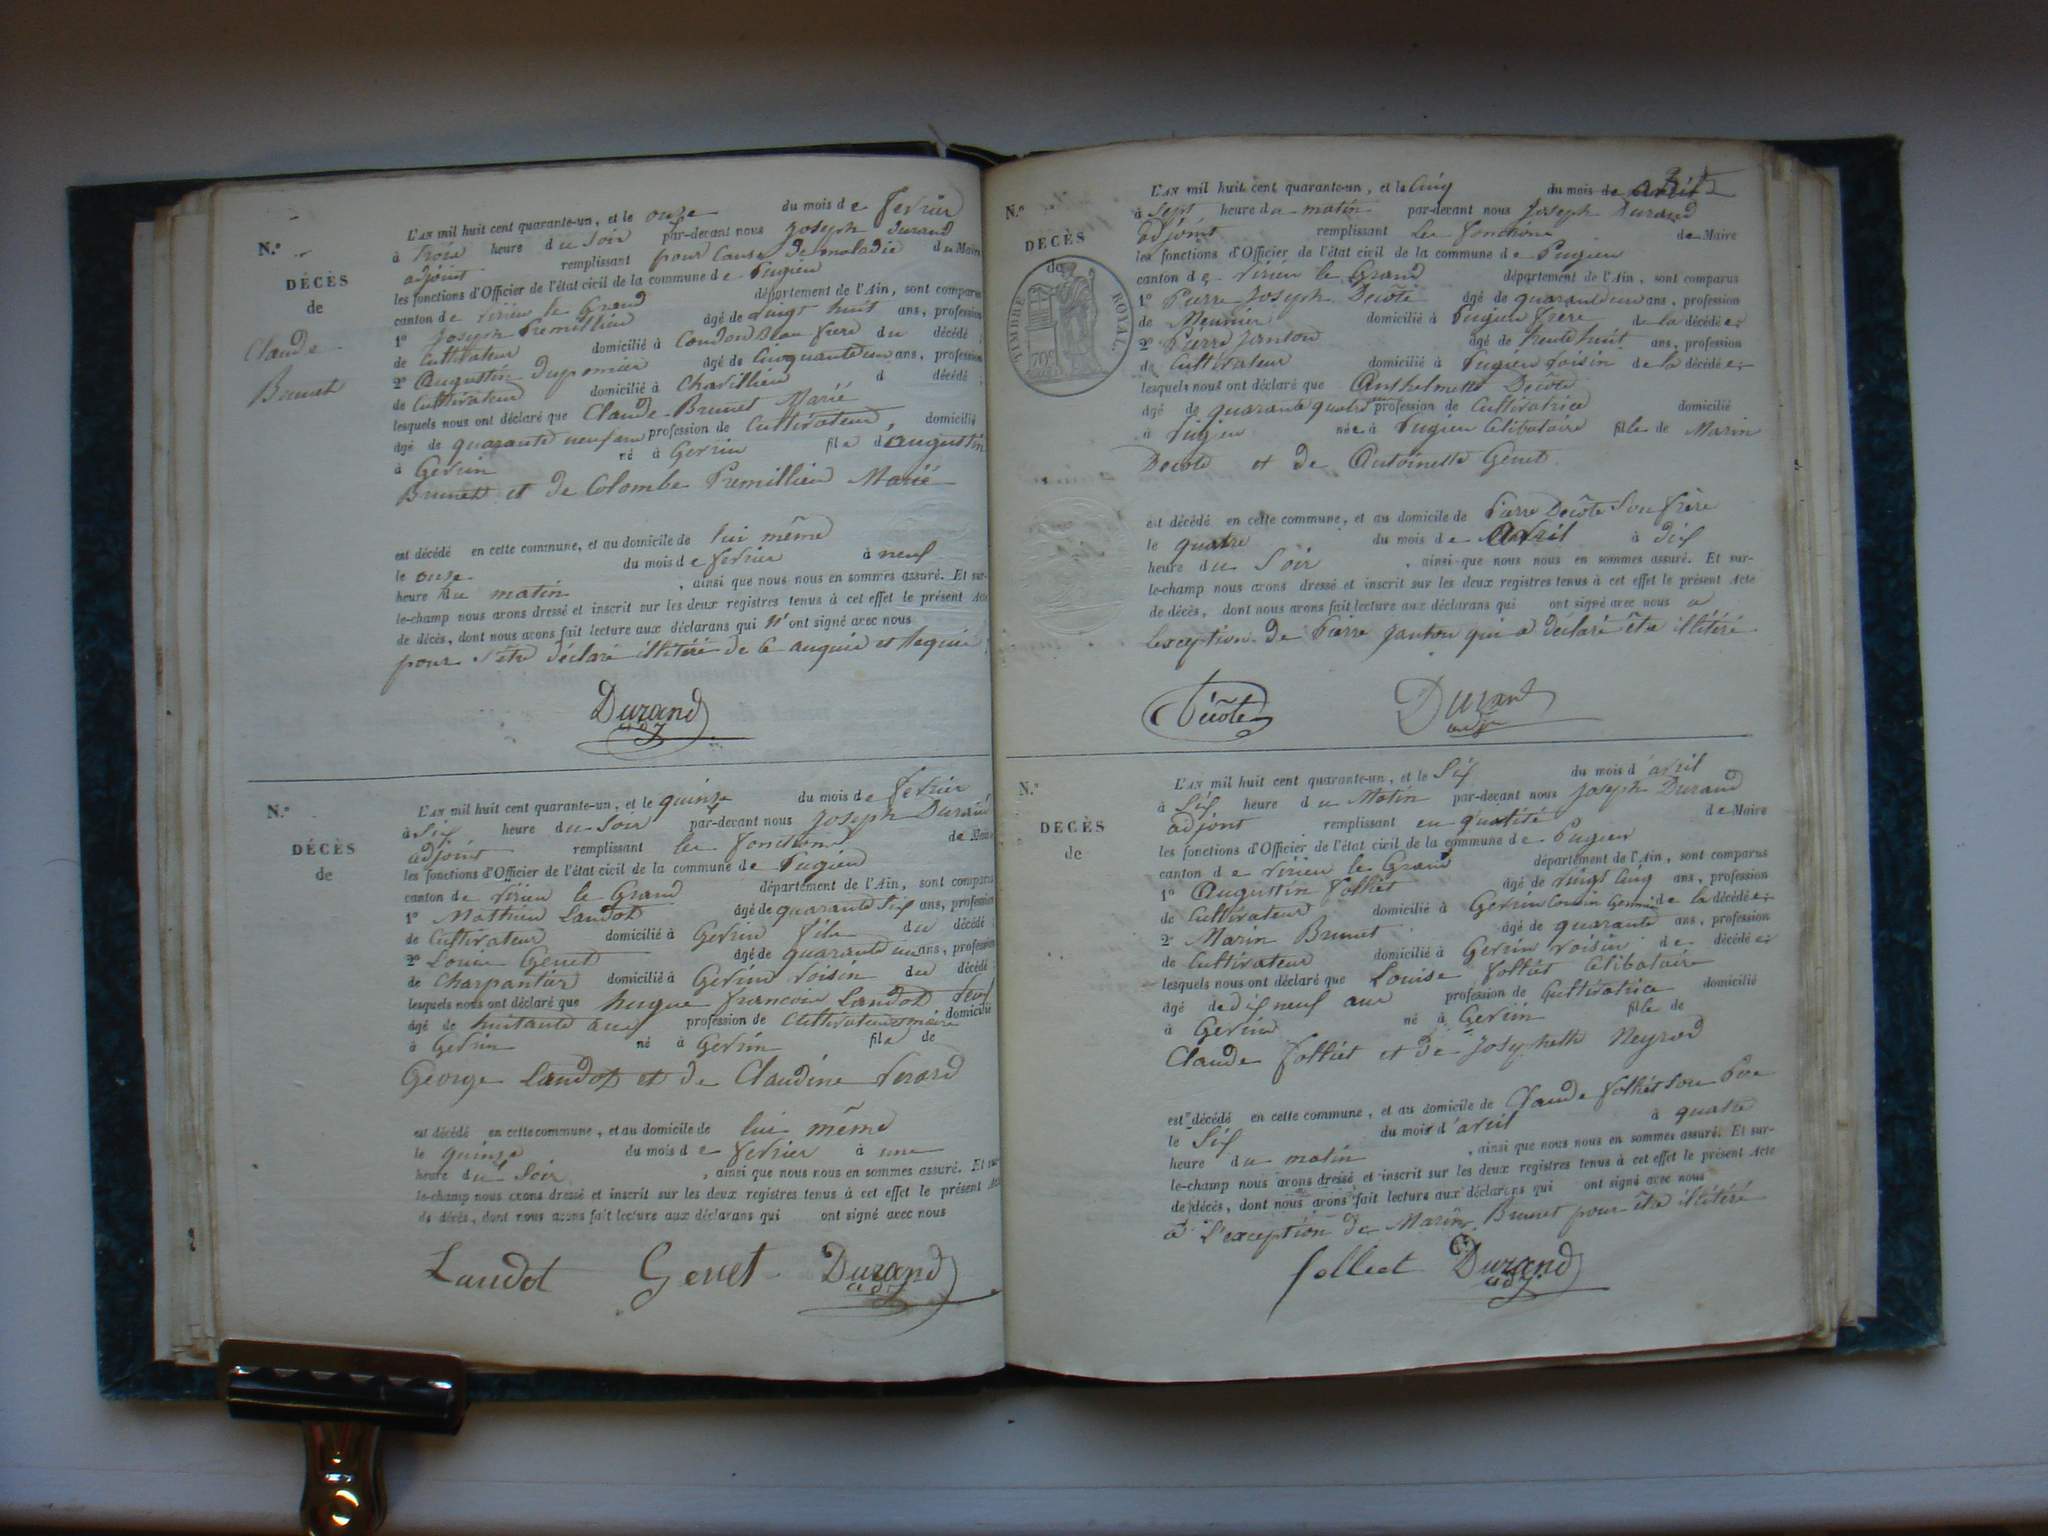 N.º
DÉCÈS
de
Claude
Brunet
L'AN mil huit cent quarante-un, et le onze du mois de fevrier
à trois heure du soir par-devant nous Joseph Durand
adjoint remplissant pour cause de maladie du Maire
les fonctions d'Officier de l'état civil de la commune de Pugieu
canton de virieu le Grand département de l'Ain, sont comparus
1º Joseph Premillieu âgé de vingt huit ans, profession
de Cultivateur domicilié à Condon Beau frere du décédé
2º Augustin Duponnier âgé de Cinquante un ans, profession
de Cultivateur domicilié à Chavillieu d décédé
lesquels nous ont déclaré que Claude Brunet Marié
âgé de quarante neuf ans profession de Cultivateur, domicilié
à Gevrin né à Gevrin fils d'augustin
Brunet et de Colombe Premillieu Marié
est décédé en cette commune, et au domicile de lui même
le onze du mois de fevrier à neuf
heure du matin, ainsi que nous nous en sommes assuré. Et sur-
le-champ nous avons dressé et inscrit sur les deux registres tenus à cet effet le présent Acte
de décès, dont nous avons fait lecture aux déclarans qui n'ont signé avec nous
pour s'être déclaré illitéré de ce enquis et Requis
Durand
adj
N.º
DÉCÈS
de
L'AN mil huit cent quarante-un, et le quinze du mois de fevrier
à Six heure du Soir par-devant nous Joseph Durand
adjoint remplissant les fonctions de Maire
les fonctions d'Officier de l'état civil de la commune de Pugieu
canton de virieu le Grand département de l'Ain, sont comparus
1º Mathieu Landot âgé de quarante Six ans, profession
de Cultivateur domicilié à Gevrin fils du décédé
2º Louis Genet âgé de quarante un ans, profession
de Charpantier domicilié à Gevrin voisin du décédé
lesquels nous ont déclaré que hugue francois Landot veuf
âgé de huitante ans profession de Cultivateur domicilié
à Gevrin né à Gevrin fils de
George Landot et de Claudine Verard
est décédé en cette commune, et au domicile de lui même
le quinze du mois de fevrier à une
heure du Soir, ainsi que nous nous en sommes assuré. Et sur-
le-champ nous avons dressé et inscrit sur les deux registres tenus à cet effet le présent Acte
de décès, dont nous avons fait lecture aux déclarans qui ont signé avec nous
Landot Genet Durand
adj
N.º
DÉCÈS
de
TIMBRE ROYAL.
L'AN mil huit cent quarante-un, et le Cinq du mois de avril
à Sept heure du matin par-devant nous Joseph Durand
adjoint remplissant les fonctions de Maire
les fonctions d'Officier de l'état civil de la commune de Pugieu
canton de virieu le Grand département de l'Ain, sont comparus
1º Pierre Joseph Decôte âgé de quarante un ans, profession
de Meunier domicilié à Pugieu frere de la décédée
2º Pierre Janton âgé de trente huit ans, profession
de Cultivateur domicilié à Pugieu voisin de la décédée
lesquels nous ont déclaré que Anthelmette Decôte
âgé de quarante quatre profession de Cultivatrice domicilié
à Pugieu née à Pugieu Celibataire fille de Marin
Decote et de Antoinette Genet
est décédé en cette commune, et au domicile de Pierre Decôte Son frère
le quatre du mois de Avril à dix
heure du Soir, ainsi que nous nous en sommes assuré. Et sur-
le-champ nous avons dressé et inscrit sur les deux registres tenus à cet effet le présent Acte
de décès, dont nous avons fait lecture aux déclarans qui ont signé avec nous a
lexception de Pierre Janton qui a declaré être illitéré
Decôte Durand
adj
N.º
DÉCÈS
de
L'AN mil huit cent quarante-un, et le Six du mois d'avril
à Six heure du Matin par-devant nous Joseph Durand
adjoint remplissant en qualité de Maire
les fonctions d'Officier de l'état civil de la commune de Pugieu
canton de virieu le Grand département de l'Ain, sont comparus
1º Augustin folliet âgé de vingt Cinq ans, profession
de Cultivateur domicilié à Gevrin Cousin Germain de la décédée
2º Marin Brunet âgé de quarante ans, profession
de Cultivateur domicilié à Gevrin voisin de décédée
lesquels nous ont déclaré que Louise folliet Celibataire
âgé de dix neuf ans profession de Cultivatrice domicilié
à Gevrin né à Gevrin fille de
Claude folliet et de Josephette Neyrod
est décédé en cette commune, et au domicile de Claude folliet Son Pere
le Six du mois d'avril à quatre
heure du matin, ainsi que nous nous en sommes assuré. Et sur-
le-champ nous avons dressé et inscrit sur les deux registres tenus à cet effet le présent Acte
de décès, dont nous avons fait lecture aux déclarans qui ont signé avec nous
a L'exception de Marin Brunet pour être illitéré
folliet Durand
adj.